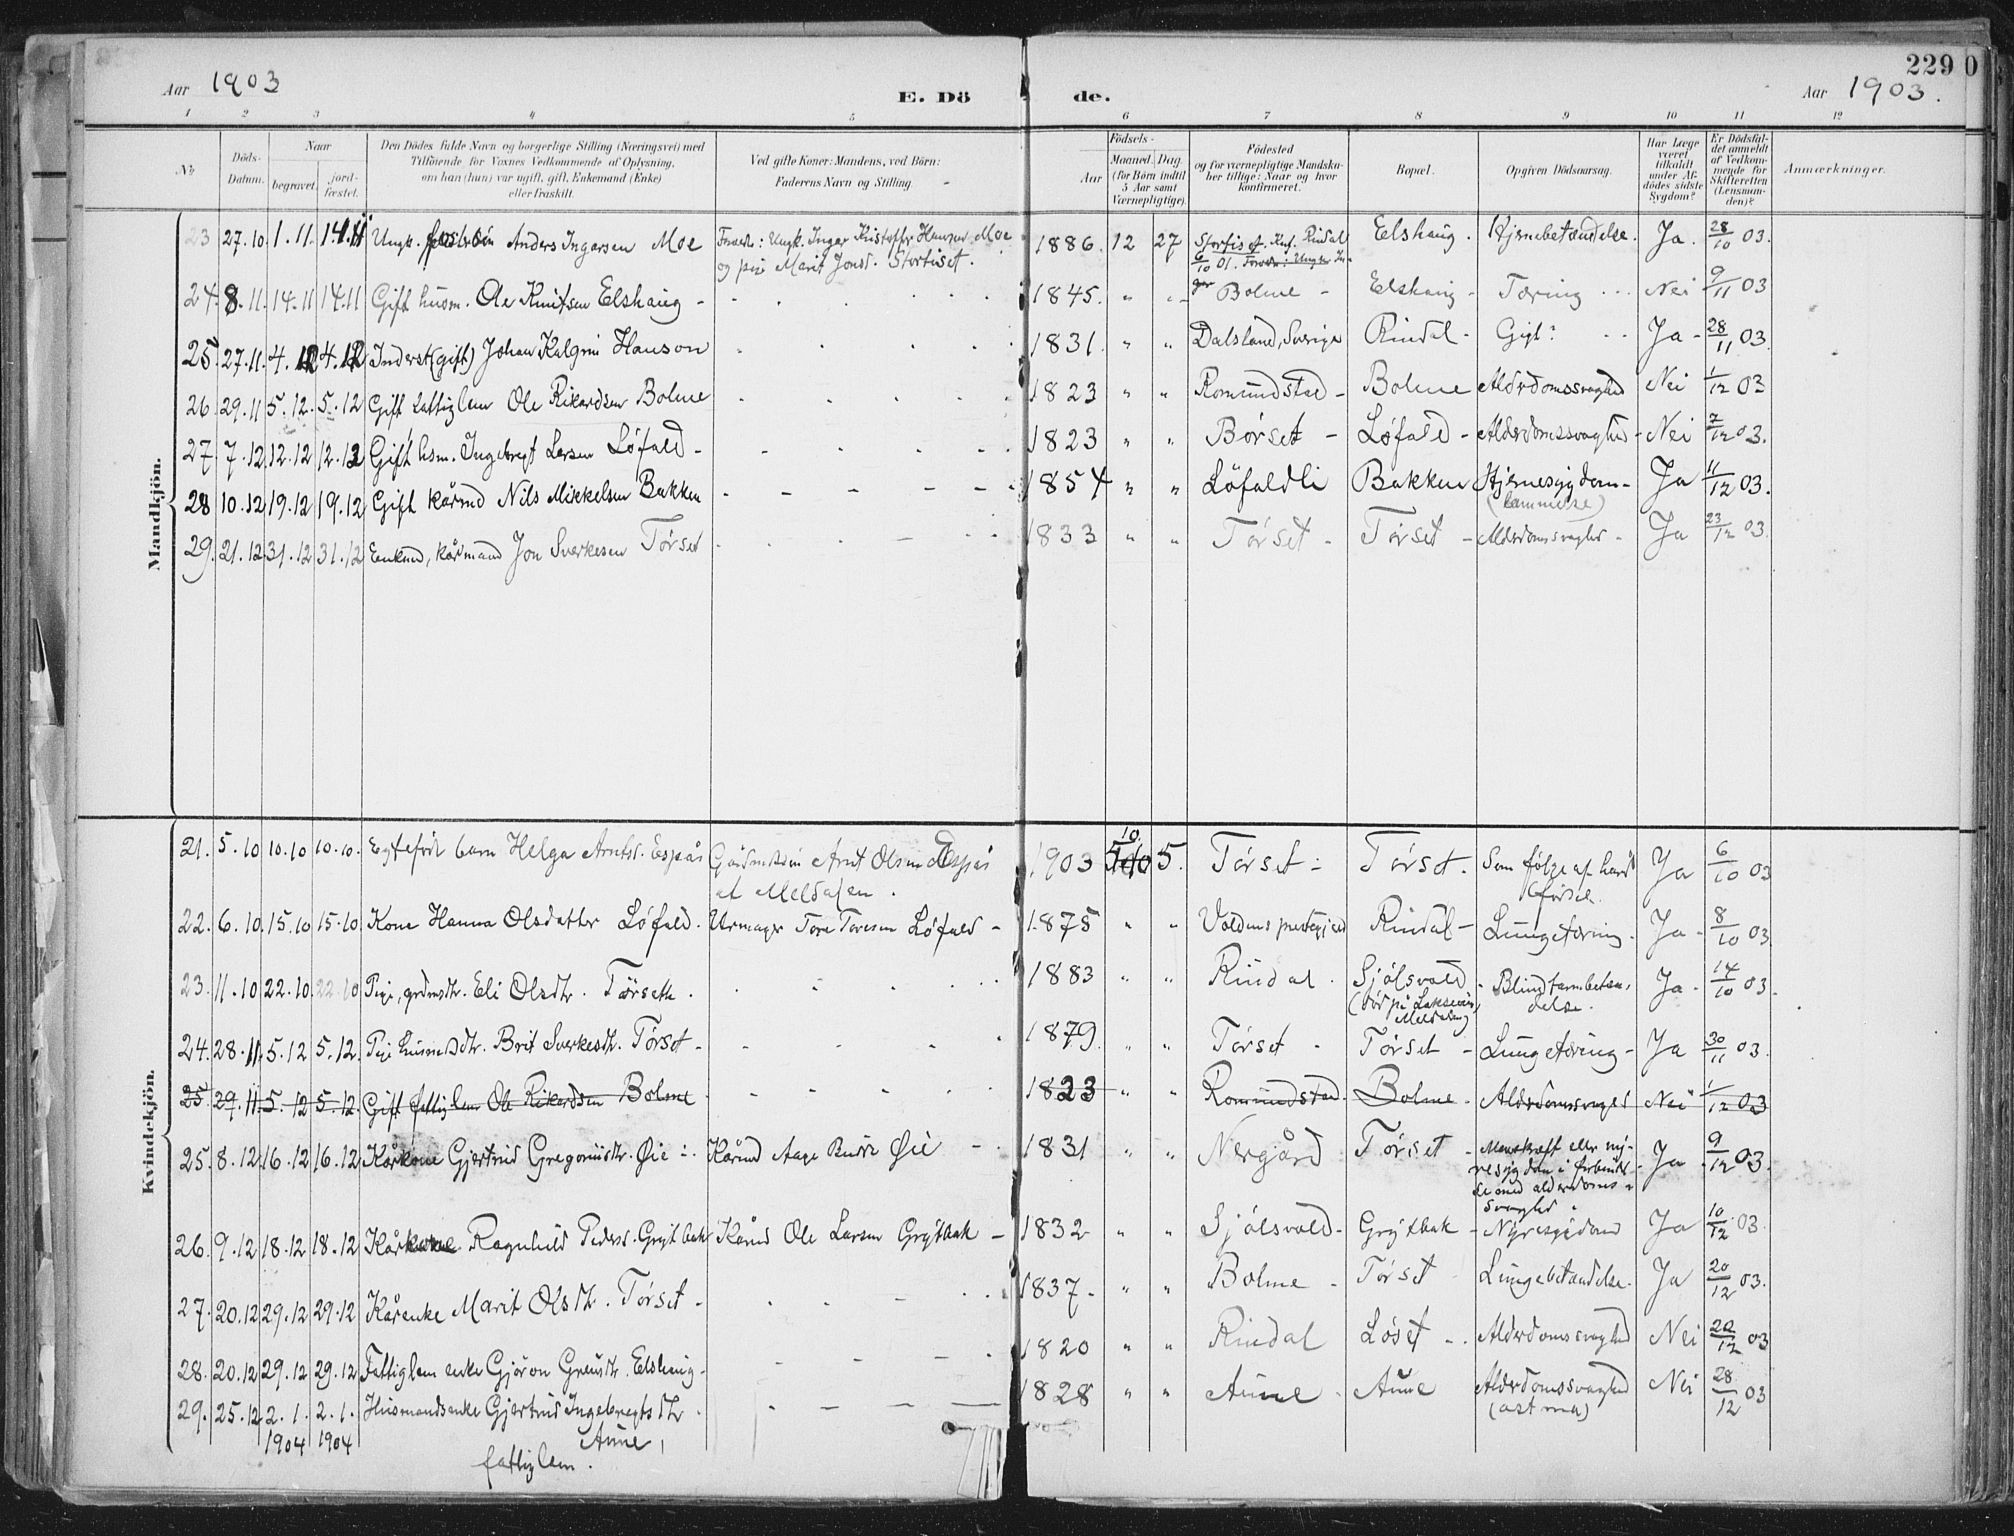 229 0
Aar 1903
E. Dö de.
Aar 1903.
1 2 3 4 5 6 7 8 9 10 11 12
No.
Döds-Datum.
Naar
begravet.
jord-fæstet.
Den Dödes fulde Navn og borgerlige Stilling (Næringsvei) med
Tilföiende for Voxnes Vedkommende af Oplysning,
om han (hun) var ugift, gift, Enkemand (Enke)
eller fraskilt.
Ved gifte Koner: Mandens, ved Börn:
Faderens Navn og Stilling.
Födsels-
Aar
Maaned. Dag.
(for Börn indtil
5 Aar samt
Værnepligtige).
Födested
og for værnepligtige Mandska-
ber tillige: Naar og hvor
konfirmeret.
Bopæl.
Opgiven Dödsaarsag.
Har Læge
været
tilkaldt
under Af-
dödes sidste
Sygdom?
Er Dödsfal-
det anmeldt
af Vedkom-
mende for
Skifteretten
(Lensman-
den)?
Anmærkninger.
Mandkjön.
23 27.10 1.11. 1.11 Ungk. Anders Ingarsen Moe Forældr: Ungk. Ingar Kristoffer Hansen Moe 1886. 12 27 Elshaug. Hjernebetændelse. Ja. 28/10 03.
og pige Marit Jonsd. Storliset.
24 8.11. 14.11 14.11 Gift husm. Ole Knutsen Elshaug - 1845. " " Bolme - Elshaug - Tæring Nei 9/11 03
25 27.11. 4.12 4.12 Inderst (gift) Johan Kalgrin Hanson 1831. " " Dalsland, Sverige Rindal - Gigt? Ja - 28/11 03.
26 29.11 5.12. 5.12 Gift Fattiglem Ole Rikardsen Bolme 1823 " " Romundstad - Bolme Alderdomssvaghed Nei 1/12 03
27 7.12 12.12 12.12 Gift hsm. Ingebrigt Larsen Løfald - 1823 " " Børset - Løfald - Alderdomssvaghed - Nei 7/12 03.
28 10.12 19.12 19.12 Gift kårmd Nils Mikkelsen Bakken 1854 " " Löfaldli Bakken Hjernesygdom - Ja 11/12 03.
(lammelse)
29. 21.12 31.12 31.12 Enkmd, kårmand Jon Sverkesen Tørset 1833 " " Tørset - Tørset - Alderdomsvaghd - Ja 23/12 03.
Kvindekjön.
21. 5.10 10.10 10.10. Egtefødt barn Helga Arntsd. Espås Arnt Olsen Espås 1903 10 5. Tørset - Tørset. Som følge af hård Ja 6/10 03
af Meldalen. fødsel.
22. 6.10 15.10 15.10 Kone Hanna Olsdatter Løfald. Urmager Tore Toresen Løfald - 1875 " " Voldens prestegjeld Rindal - Lungetæring. Ja - 8/10 03
23. 11.10 22.10 22.10 Pige, grdmdtr. Eli Olsdtr. Tørseth. 1883 " " Rindal. Sjølsvold - Blindtarmbetæn- Ja - 14/10 03.
(død på Laksøien, delse.
Meldalen)
24. 28.11. 5.12 5.12. Pige husmdtr. Brit Sverkesdtr. Tørset - 1879. " " Tørset - Tørset - Lungetæring - Ja 30/11 03.
25. 29.11 5.12 5.12. Gift fattiglem Ole Rikardsen Bolme 1823 " " Romundstad. Bolme. Alderdomsvaghed Nei 1/12 03
25. 8.12 16.12 16.12 Kårkone Gjertrud Gregoriusdtr. Øie Kårmd Aage Øie - 1831 " " Nergård Tørset - Mavekræft eller ny- Ja - 9/12 03.
resygdom i forbindel-
se med alderdoms-
svaghed.
26. 9.12 18.12 18.12 Kårkone Ragnhild Pedersd. Grytbak Kårmd Ole Larsen Grytbak - 1832 " " Sjølsvold - Grytbak - Nyresygdom Ja 10/12 03.
27. 20.12 29.12 29.12 Kårenke Marit Olsdtr. Tørset - 1837. " " Bolme - Tørset Lungebetændelse. Ja 20/12 03.
28. 20.12 29.12 29.12 Fattiglem enke Gjøron Elshaug - 1820 " " Rindal Løset - Alderdomssvaghed Nei 20/12 03
29. 25.12 2.1. 2.1. Husmandsenke Gjertrud Ingebrigtsdtr. 1828 " " Aune - Aune Alderdomssvaghed Nei 28/12 03
1904 1904 Aune, (astma)
fattiglem.